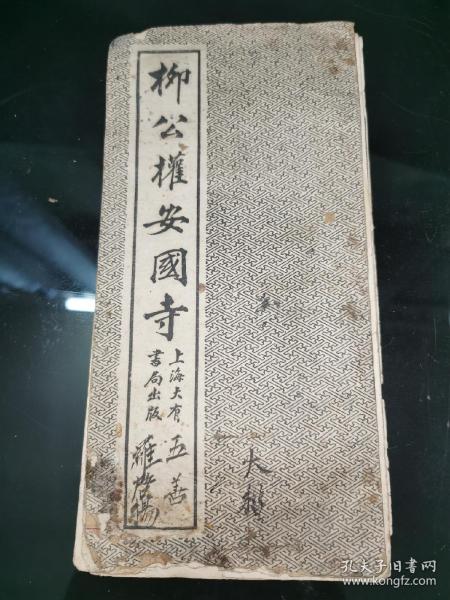 柳公權安國寺
上海大有
書局出版
五善
羅
大
孔夫子旧书网
www.kongfz.com